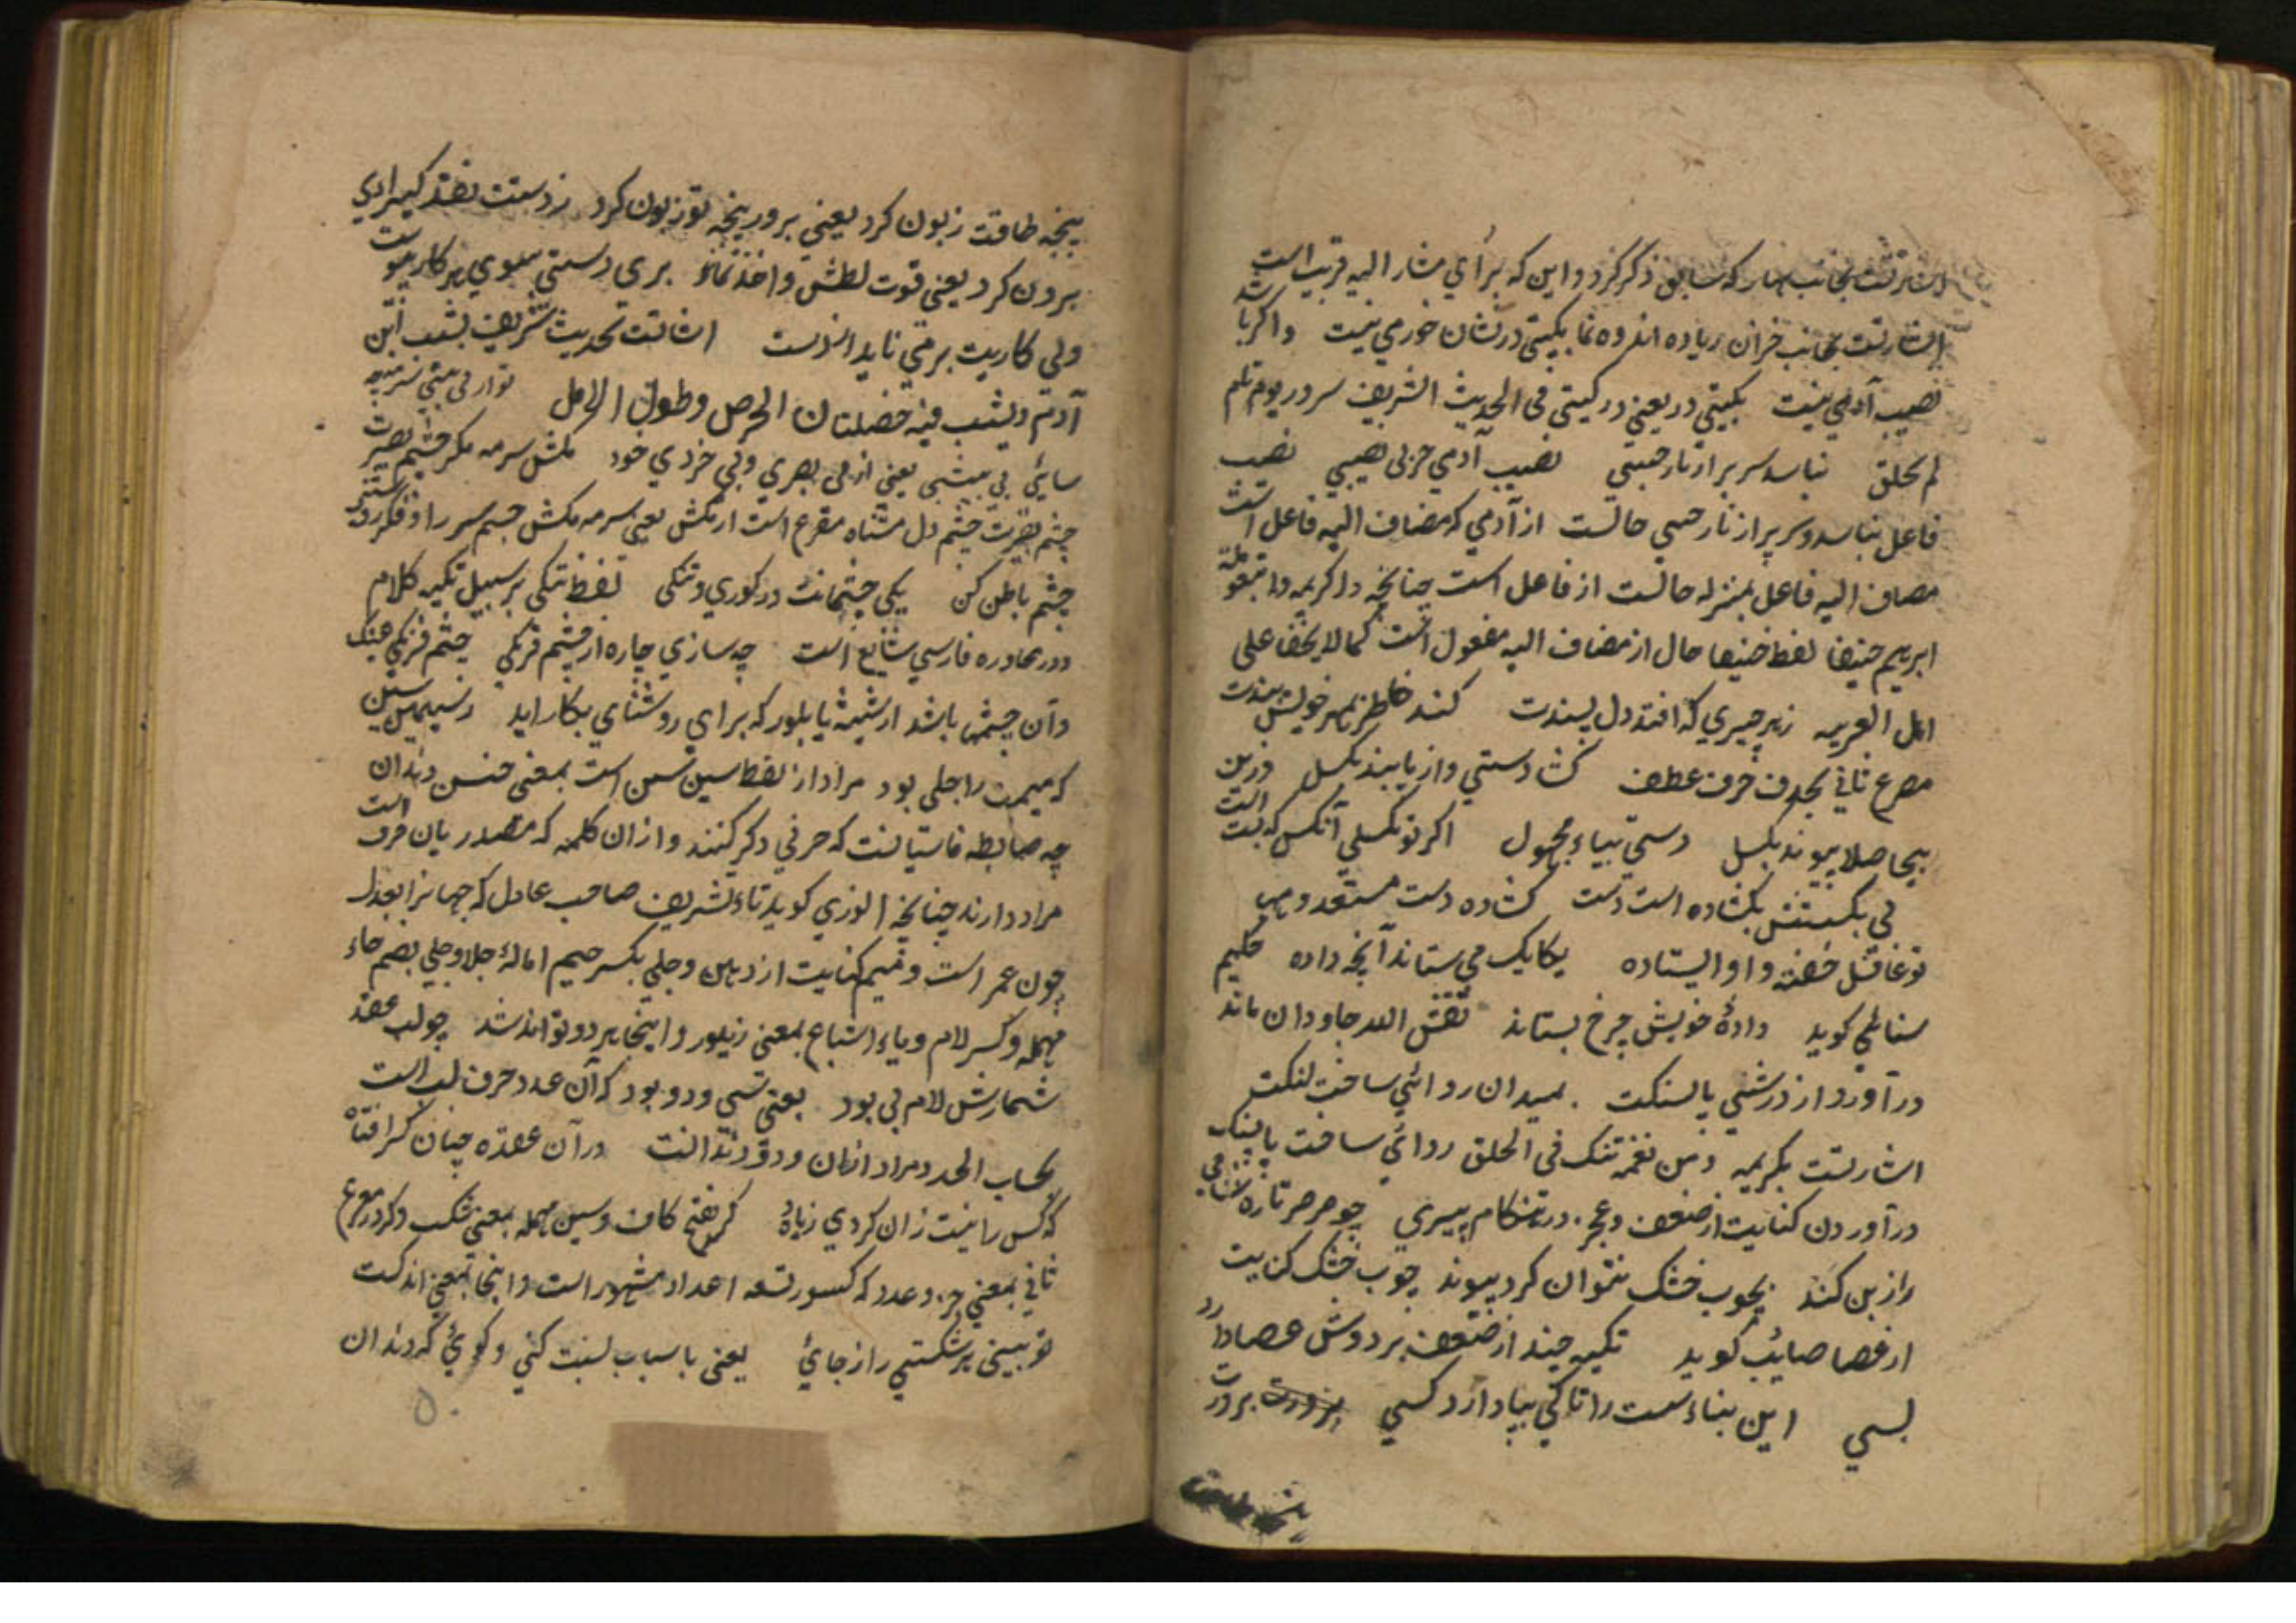 اشارتست بجانب بهار که سابق ذکر کرد و این که برای مشار الیه قریب است
اشارتست بجانب خزان زیاده اندوه نما بگیتی درنشان خورمی نیست و اگر باشد
نصیب آدمی نیست بگیتی در یعنی در گیتی فی الحدیث الشریف سرور یوم تام
لم یخلق نباسد سر بر ار تار حبیبی نصیب آدمی جز بی نصیبی نصیب
فاعل نباسد و سر بر از تار حبیبی حالست از آدمی که مضاف الیه فاعل است
مضاف الیه فاعل بمنزله حالست از فاعل است چنانچه در کریمه واتبعوا ملة
ابریهم حنیفا لفظ حنیفا حال از مضاف الیه مفعول است کما لا یخفا علی
اهل العربیه زهر چیزی که افتد دل پسندت کند خاطر بمهر خویش بندت
مصرع ثانی بحذف حرف عطف گشا دستی و از پا بند بگسل وزین
بیحاصلا پیوند بگسل دستی بیاء مجهول اگر تو نگسلی آنکس که بست است
پی بگسستنش بگشاده است دست گشاده دست مستعد و مهیا
تو غافل خفته و او ایستاده یکایک می ستاند آنچه داده حکیم
سنائی گوید دادهٔ خویش چرخ بستاند نقش الله جاودان ماند
درآورد از درشتی پا بسنگت بمیدان روائی ساخت لنگت
اشارتست بکریمه ومن نعمره ننکسه فی الخلق روائی ساخت پا بسنگ
درآوردن کنایت از ضعف و عجز در هنگام پیری چو صرصر تازه شاخی
را ز بن کند بچوب خشک نتوان کرد پیوند چوب خشک کنایت
از عصا صایب گوید تکیه چند از ضعف بر دوش عصا دارد
بسی این بناء سست را تا کی بپا دارد کسی بزورت
پنجه طاقت
پنجه طاقت زبون کرد یعنی بزور پنجه تو زبون کرد ز دستت نقد گیرایی
برون کرد یعنی قوت لطش و اخذ نماند بری دستی بسوی هر کاریست
ولی کاریت بر می ناید از دست اشارتست بحدیث شریف یشیب ابن
آدم ویشب فیه خصلتان الحرص وطول الامل تو از بی بینشی سرمه
سائی بی بینشی یعنی از بی بصری و بی خردی خود مکش سرمه مگر چشم بصیرت
چشم بصیرت چشم دل مشتاه مقرع است از مکش یعنی سرمه مکش چشم سر را و فکر روشنی
چشم باطن کن یکی چشمانت در کوری و تنگی لفظ تنگی بر سبیل تکیه کلام
و در محاوره فارسی شایع است چه سازی چاره از چشم فرنگی چشم فرنگی عینک
و آن چشمها باشد از شیشه یا بلور که برای روشنای بکار اید ز سیمین سین
که میمت را جلی بود مراد از لفظ سین سن است بمعنی جنس دندان
چه ضابطه فاستیانست که حرفی ذکر کنند و از ان کلمه که مصدر بان حرف است
مراد دارند چنانچه انوری گوید تاء تشریف صاحب عادل که جهانرا بعدل
چون عمر است و میم کنایت از دهن و جلی بکسر جیم امالهٔ جلا و حلی بضم حاء
مهمله و کسر لام و یاء اشباع بمعنی زیور و اینجا هر دو تواند شد چو لب عقد
شمارش لام بی بود یعنی سی و دو بود که آن عدد حرف لب است
بحساب ابجد و مراد از ان ودو دندانست در آن عقده چنان کسر افتاد
که کس را نیست زان کردی زیاد کسر بفتح کاف و سین مهمله بمعنی شکست و کرد در مصرع
ثانی بمعنی جز و عدد که کسور تسعه اعداد مشهور است و اینجا بمعنی اندکست
تو بینی هر شکستی را ز جائی یعنی با سباب نسبت کنی و گوئی که دندان
۵۰